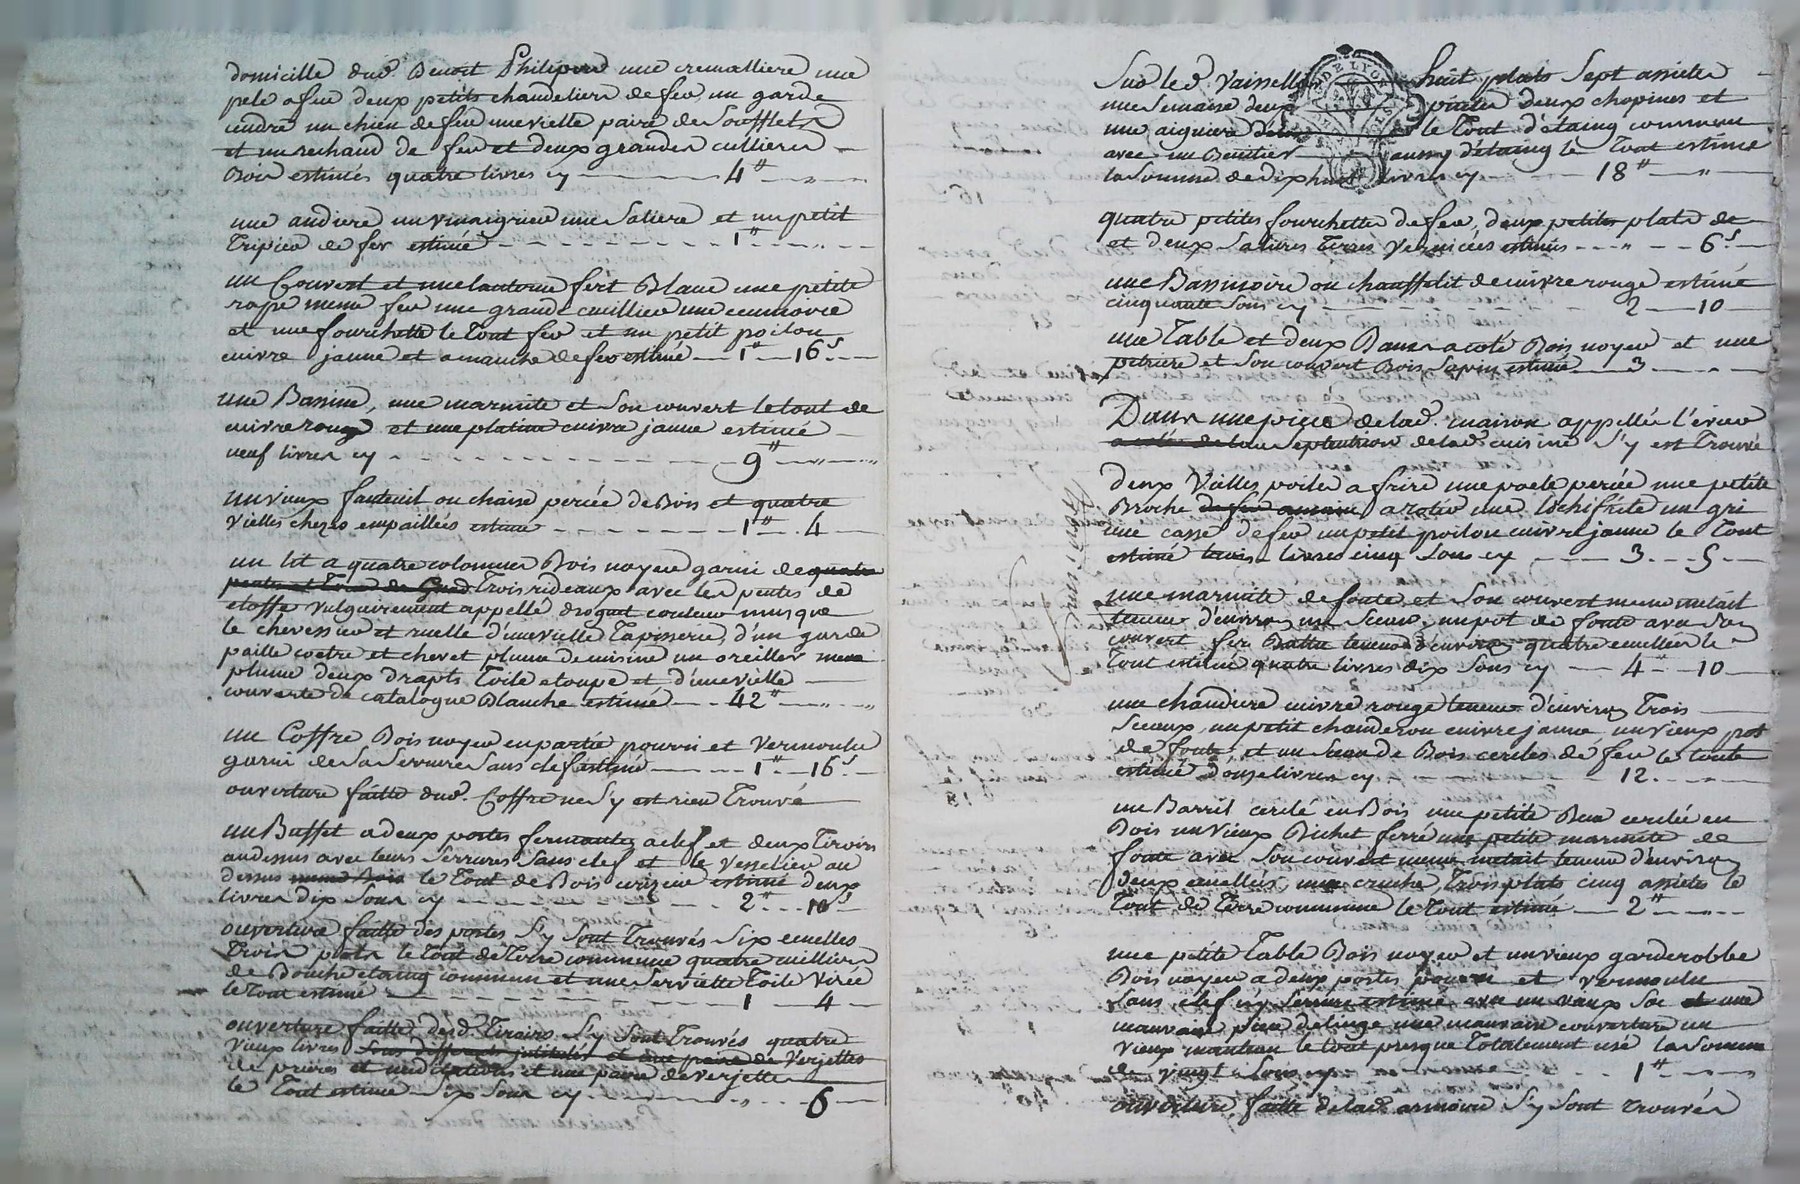 domicille dud. Benoit Philipon une cremalliere une
pele a feu deux petits chandeliers de fer, un garde
cendre un chien de feu une vielle paire de Soufflets
et un rechaud de fer et deux grandes cullieres
Bois estimés quatre livres cy 4# "
une andiere un vinaigrier une Saliere et un petit
Tripier de fer estimé 1# "
un Couvert et une lanterne fert Blanc une petite
rape meme fer une grande cuilliere une ecumoire
et une fourchette le tout fer et un petit poilon
cuivre jaune et a manche de fer estimé 1# 16s
une Bassine, une marmite et Son couvert le tout de
cuivre rouge et une platine cuivre jaune estimé
neuf livres cy 9# "
un vieux fauteuil ou chaise percée de Bois et quatre
vielles chezes empaillées estimé 1# 4
un lit a quatre colonnes Bois noyer garni de quatre
pentes et Trois rideaux avec les pentes de
etoffe vulguairement appellé droguet couleur musque
le chevessier et ruelle d'une vielle Tapisserie, d'un garde
paille coetre et chevet plume de cuisine un oreiller meme
plume deux drapts Toile etoupe et d'une vielle
couverte de catalogue Blanche estimé 42# "
un Coffre Bois noyer en partie pourri et Vermoulu
garni de Sa Serrure Sans clef estimé 1# 16s
ouverture faitte dud. Coffre ne S'y est rien Trouvé
un Buffet a deux portes fermantes a clef et deux Tiroirs
au dessus avec leurs Serrures Sans clef et le Vesselier au
dessus meme Bois le Tout de Bois cerisier estimé deux
livres dix Sous cy 2# 10s
ouverture faitte des portes S'y Sont Trouvés Six ecuelles
Trois plats le Tout de Terre commune quatre cuilliers
de Bouche etaing commun et une Serviette Toile Virée
le tout estimé 1 4
ouverture faitte desd. Tiroirs S'y Sont Trouvés quatre
Vieux livres Sous differents intitulés et une paire de Verjettes
de prieres et une paire de verjettes
le Tout estimé Six Sous cy " 6
Sud. led. Vaissellier huit plats Sept assietes
une Semaise deux deux chopines et
une aiguiere le Tout d'étaing commun
avec un Benitier aussy d'étaing le Tout estimé
la Somme de dix huit livres cy 18# "
quatre petites fourchettes de fer, deux petites plats de
et deux Salieres Terres Vernicées estimés " 6s
une Bassinoire ou chauffelit de cuivre rouge estimé
cinquante Sous cy 2 10
une Table et deux Bancs a coté Bois noyer et une
petriere et Son couvert Bois Sapin estimé 3 "
Dans une piece de lad. maison appellée l'évier
Septentrion de lad. cuisine S'y est Trouvé
deux Vielles poiles a frire une poele percée une petite
Broche a rotir une lechifrite un gri
une casse de fer un petit poilon cuivre jaune le Tout
estimé trois livres cinq Sous cy 3 5
une marmite de fonte et Son couvert meme metail
teneur d'environ un Sceau, un pot de fonte avec Son
couvert fer Battu teneur d'environ quatre ecuelles le
Tout estimé quatre livres dix Sous cy 4 10
une chaudiere cuivre rouge teneur d'environ Trois
Sceaux, un petit chanderon cuivre jaune, un Vieux pot
de fonte et un Seau de Bois cercles de fer le toute
estimé douze livres cy 12 "
un Barril cerclé en Bois une petite Ben cerclée en
Bois un Vieux Bichet ferré une petite marmite de
fonte avec Son couvert meme metail teneur d'environ
deux ecuelles, une cruche, Trois plats cinq assietes le
Tout de Terre commune le Tout estimé 2# "
une petite Table Bois noyer et un vieux garderobbe
Bois noyer a deux portes pourri et vermoulu
Sans clef ny Serrure estimé avec un vieux Sac et une
mauvaise piece de linge une mauvaise couverture un
vieux manteau le tout presque Totalement usé la Somme
de vingt Sous cy 1# "
ouverture faitte de lad. armoire S'y Sont Trouvés